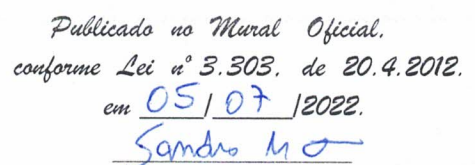 Publicado no Mural Oficial,
conforme Lei nº 3.303, de 20.4.2012.
em 05/07/2022.
Sandro M